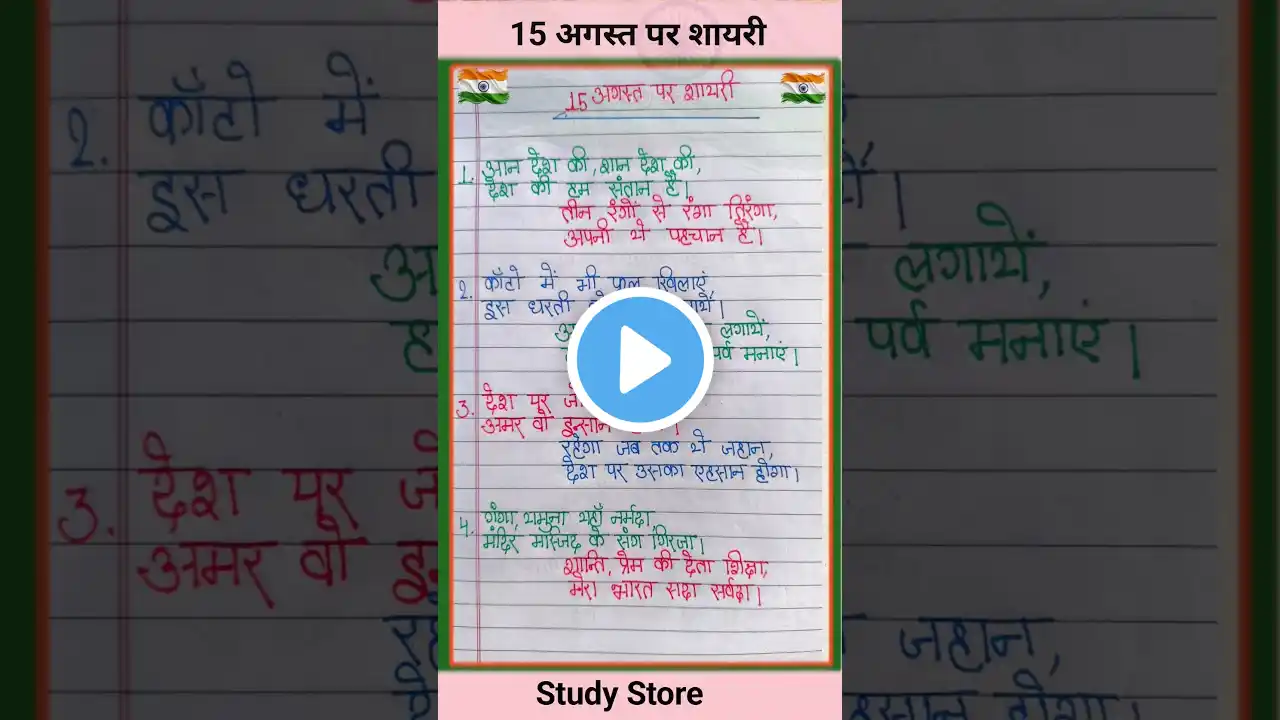 15 अगस्त पर शायरी
15 अगस्त पर शायरी
1. आन देश की, शान देश की,
देश की हम संतान है।
तीन रंगों से रंगा तिरंगा,
अपनी ये पहचान है।
2. काँटो में भी फूल खिलाएं,
इस धरती
लगायें,
पर्व मनाएं।
3. देश पर
अमर वो इन्सान
रहेगा जब तक ये जहान,
देश पर उसका एहसान होगा।
4. गंगा, यमुना यहाँ नर्मदा,
मंदिर मस्जिद के संग गिरजा।
शान्ति, प्रेम की देता शिक्षा,
मेरा भारत सदा सर्वदा।
Study Store
2. काँटो में
इस धरती
लगायें,
पर्व मनाएं।
3. देश पर
अमर वो
जहान,